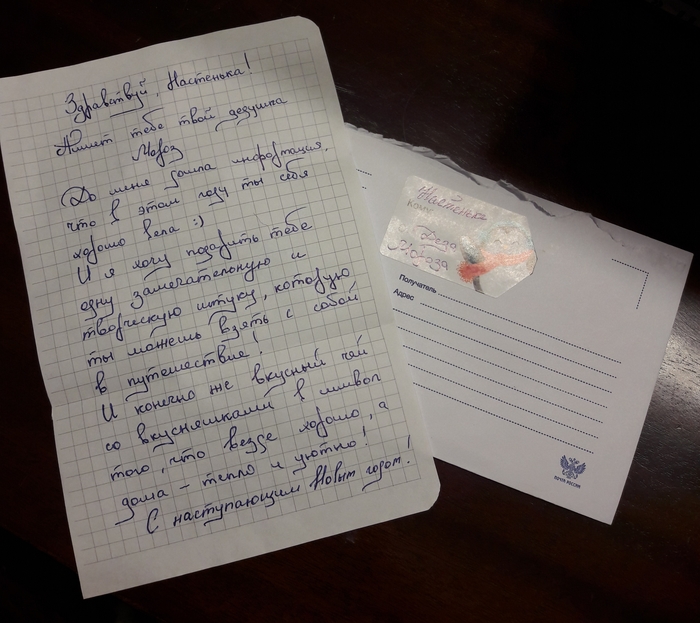 Здравствуй, Настенька!
Пишет тебе твой дедушка
Мороз
До меня дошла информация,
что в этом году ты себя
хорошо вела :)
И я хочу подарить тебе
одну замечательную и
творческую штуку, которую
ты можешь взять с собой
в путешествие!
И конечно же вкусный чай
со вкусняшками в символ
того, что везде хорошо, а
дома - тепло и уютно!
С наступающим Новым годом!
Настеньке
Кому
Деда
Мороза
Получатель
Адрес
ПОЧТА РОССИИ